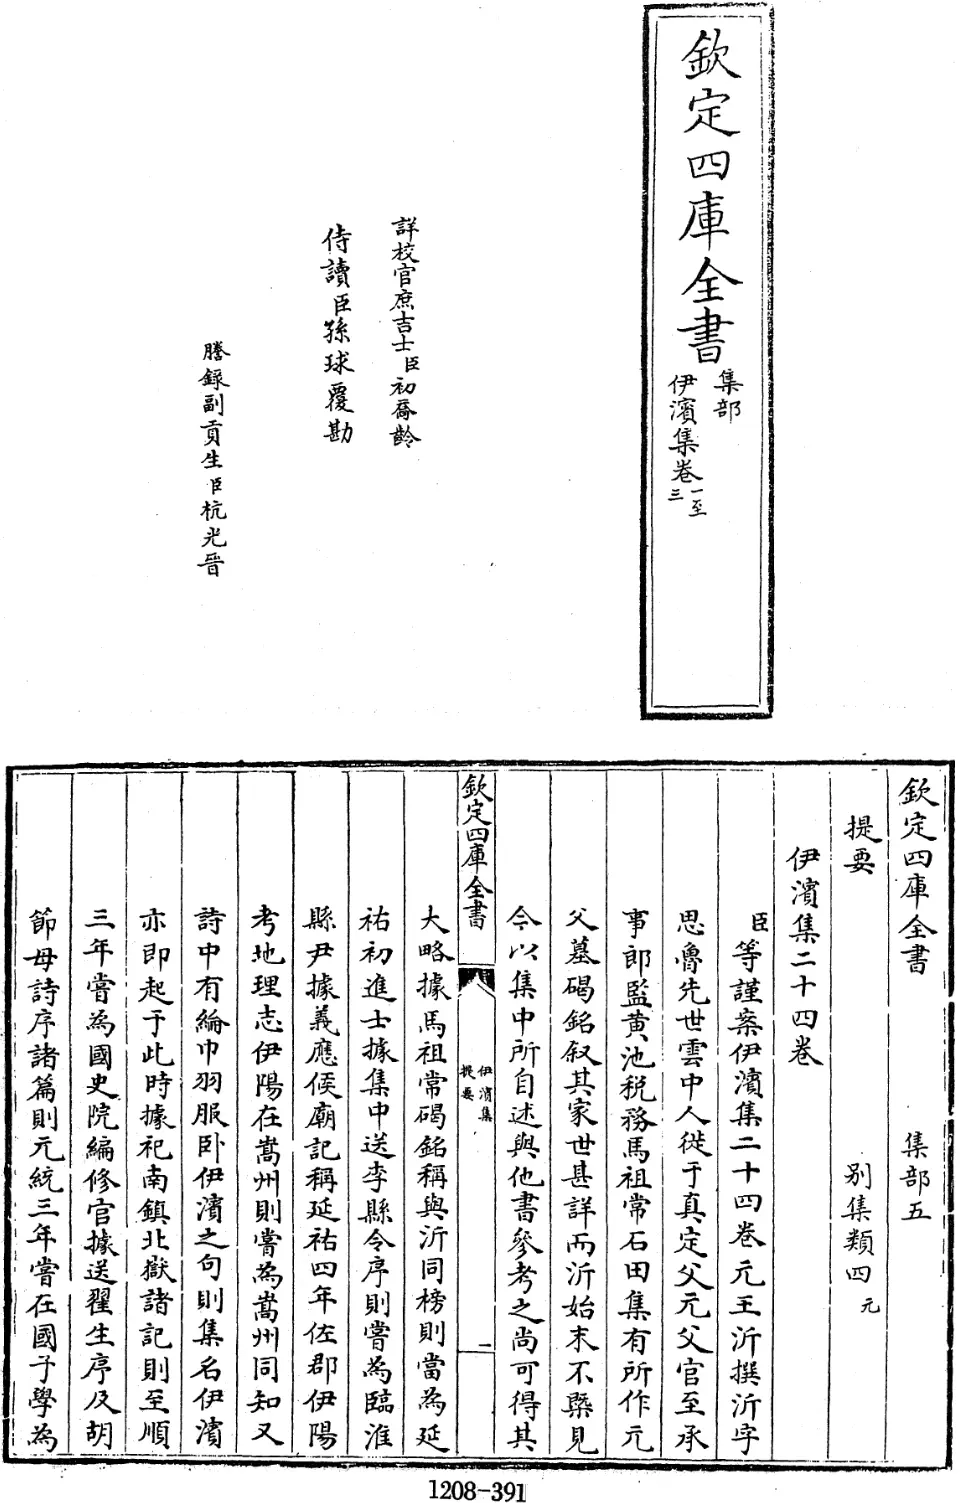 欽定四庫全書
集部
伊濱集卷一至三
詳校官庶吉士臣初喬齡
侍讀臣孫球覆勘
謄錄副貢生臣杭光晉
欽定四庫全書
集部五
提要
别集類四元
伊濱集二十四卷
臣等謹案伊濱集二十四卷元王沂撰沂字
思魯先世雲中人徙于真定父元父官至承
事郎監黄池税務馬祖常石田集有所作元
父墓碣銘叙其家世甚詳而沂始末不槩見
今以集中所自述與他書參考之尚可得其
欽定四庫全書
伊濱集
提要
一
大略據馬祖常碣銘稱與沂同榜則當為延
祐初進士據集中送李縣令序則嘗為臨淮
縣尹據義應侯廟記稱延祐四年佐郡伊陽
考地理志伊陽在嵩州則嘗為嵩州同知又
詩中有綸巾羽服卧伊濱之句則集名伊濱
亦即起于此時據祀南鎮北嶽諸記則至順
三年嘗為國史院編修官據送翟生序及胡
節母詩序諸篇則元統三年嘗在國子學為
1208-391